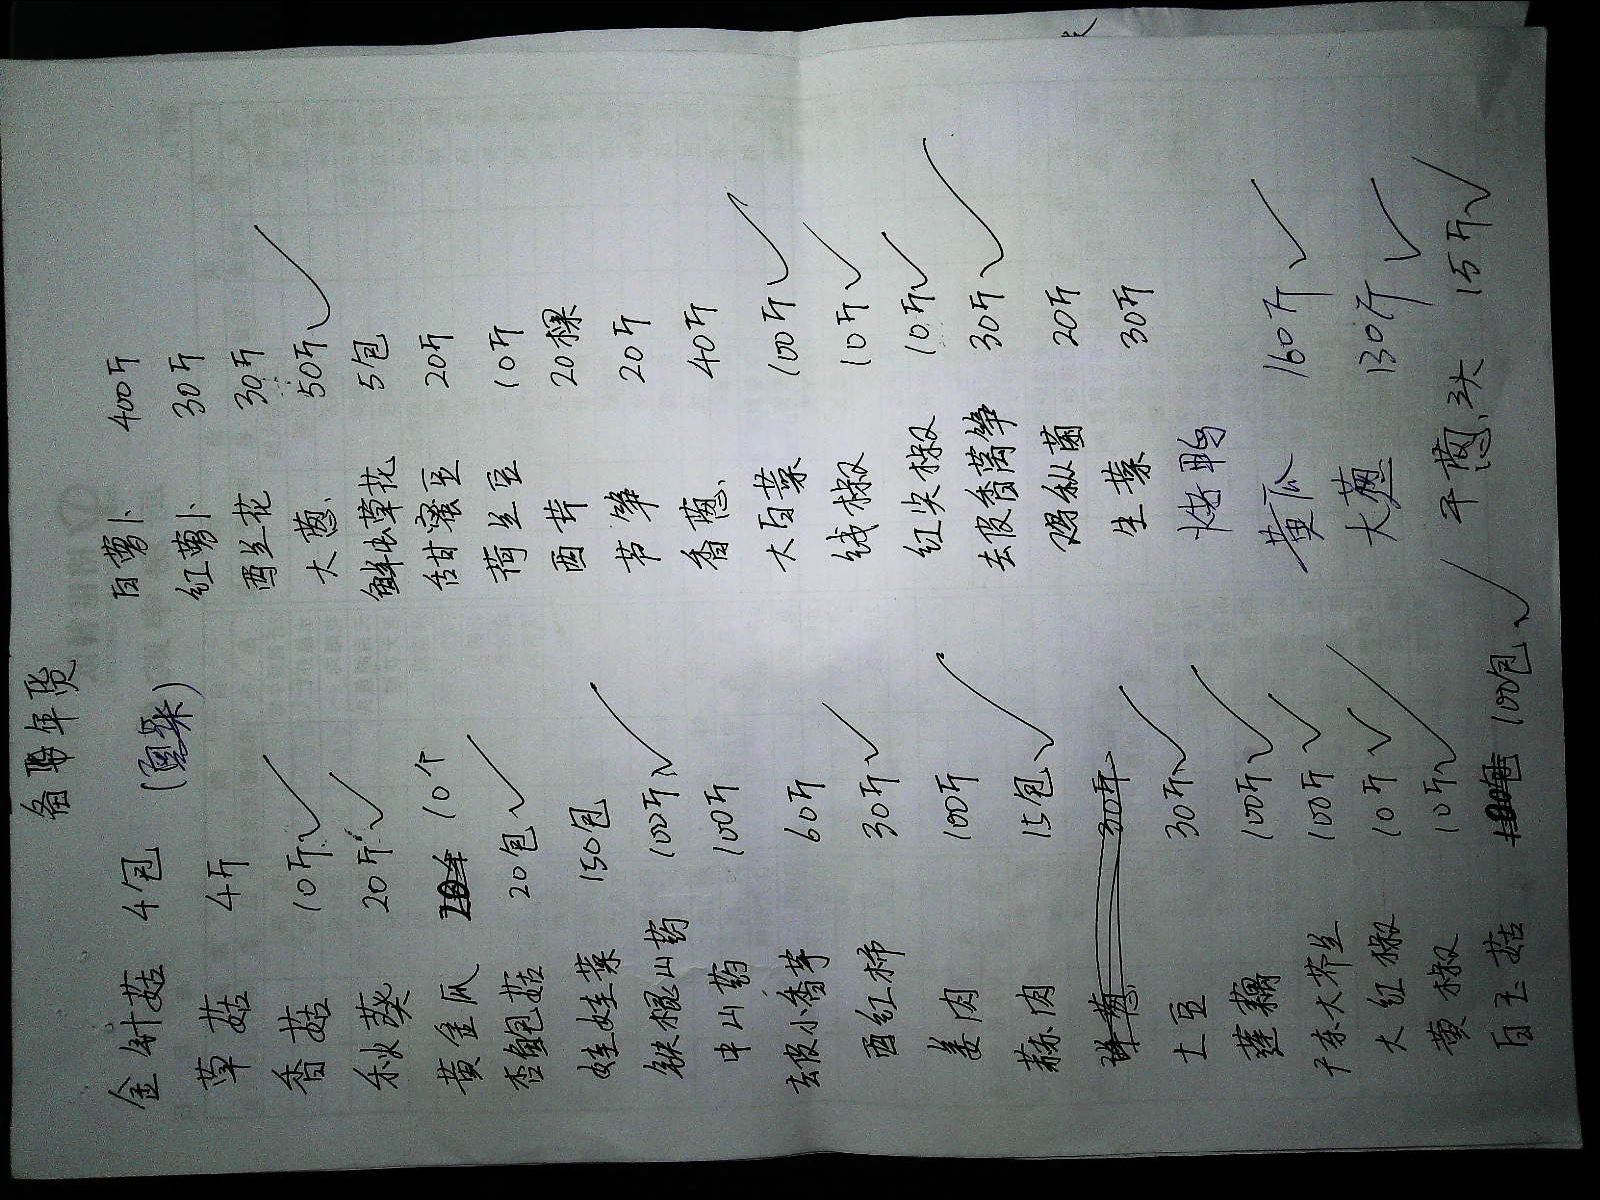 备年货
金针菇 4包
草菇 4斤
香菇 10斤
秋葵 20斤
黄金瓜 10个
杏鲍菇 20包
娃娃菜 150包
铁棍山药 100斤
中山药 100斤
去皮小香芋 60斤
西红柿 30斤
姜肉 100斤
蒜肉 15包
洋葱 30斤
土豆 30斤
莲藕 100斤
广东大芥兰 100斤
大红椒 10斤
黄椒 10斤
白玉菇 100包
白萝卜 400斤
红萝卜 30斤
西兰花 30斤
大葱 50斤
鲜虫草花 5包
甜蜜豆 20斤
荷兰豆 10斤
西芹 20棵
芦笋 20斤
香葱 40斤
大白菜 100斤
线椒 10斤
红尖椒 10斤
去皮香莴笋 30斤
鸡枞菌 20斤
生菜 30斤
烤鸭
黄瓜 160斤
大葱 130斤
干葱头 15斤